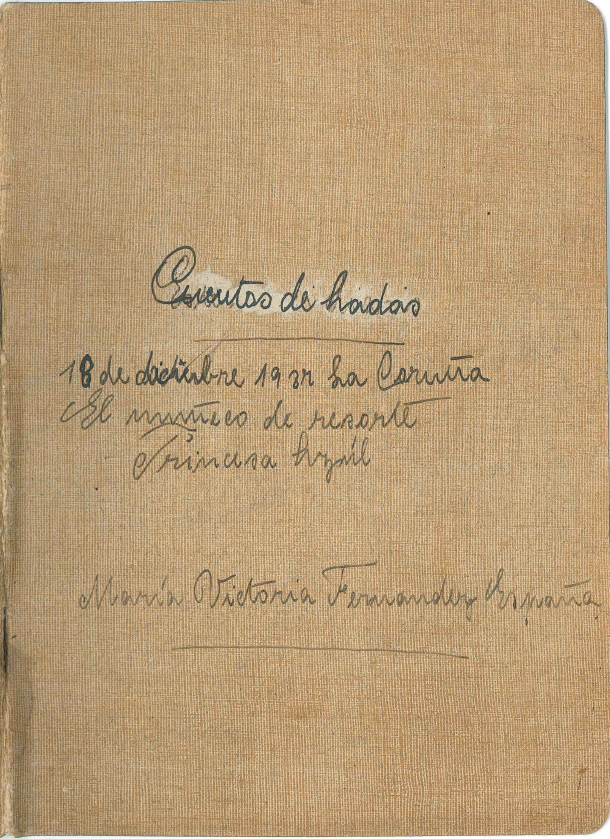 Cuentos de hadas
18 de diciembre 1937 La Coruña
El muñeco de resorte
Princesa
María Victoria Fernandez España